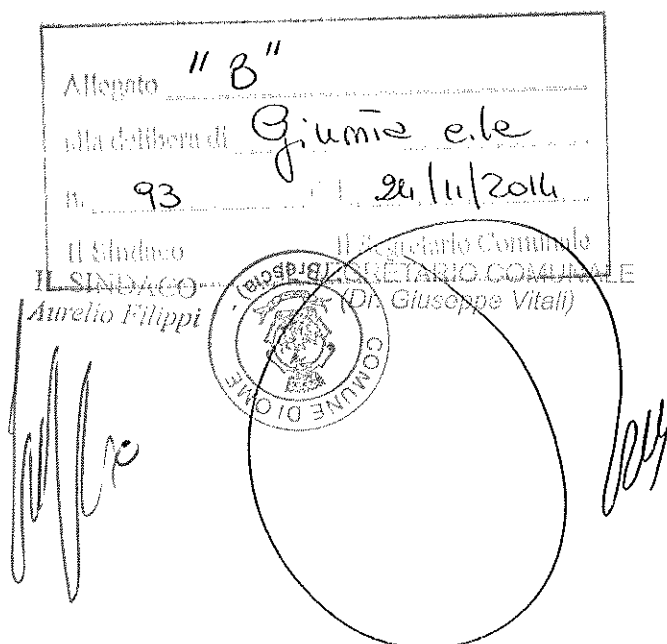 Allegato "B"
alla delibera di Giunta c.le
n. 93 del 24/11/2014
Il Sindaco Il Segretario Comunale
IL SINDACO IL SEGRETARIO COMUNALE
Aurelio Filippi (Dr. Giuseppe Vitali)
COMUNE DI OME (Brescia)